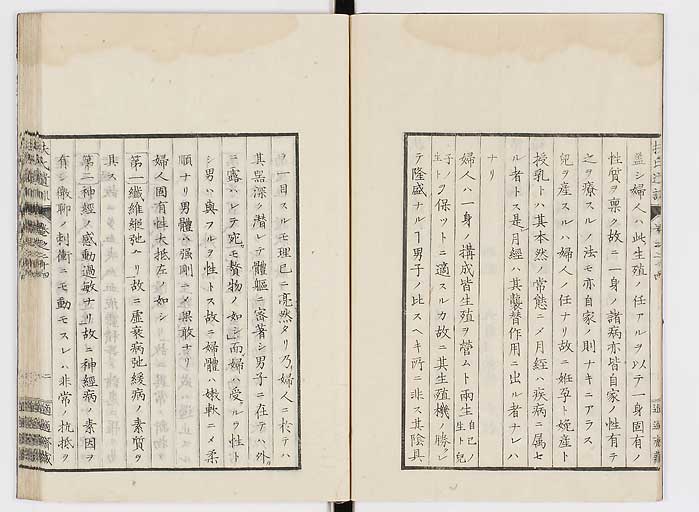 蓋シ婦人ハ此生殖ノ任アルヲ以テ一身固有ノ
性質ヲ稟ク故ニ一身ノ諸病亦皆自家ノ性有テ
之ヲ療スルノ法モ亦自家ノ則ナキニアラス
兒ヲ産スルハ婦人ノ任ナリ故ニ姙孕ト娩産ト
授乳トハ其本然ノ常態ニメ月經ハ疾病ニ属セ
ル者トス是月經ハ其襲替作用ニ出ル者ナレハ
ナリ
婦人ハ一身ノ構成皆生殖ヲ營ムト兩生自己ノ生ト兒
子ノ生トヲ保ツトニ適スルカ故ニ其生殖機ノ勝レ
テ隆盛ナルヿ男子ノ比スヘキ所ニ非ス其陰具
ヲ一目スルモ理已ニ亮然タリ乃婦人ニ於テハ
其器深ク潜レテ體軀ニ密著シ男子ニ在テハ外
ニ露ハレテ宛モ贅物ノ如シ而婦ハ受ルヲ性ト
シ男ハ與フルヲ性トス故ニ婦體ハ嫩軟ニメ柔
順ナリ男體ハ强剛ニメ果敢ナリ
婦人固有性大抵左ノ如シ
第一纖維縱弛ヘリ故ニ虚衰病弛緩病ノ素質ヲ
其ス
第二神經ノ感動過敏ナリ故ニ神經病ノ素因ヲ
有シ微聊ノ刺衝ニモ動モスレハ非常ノ抗抵ヲ
扶氏遺訓
卷之二十四
適適齋藏